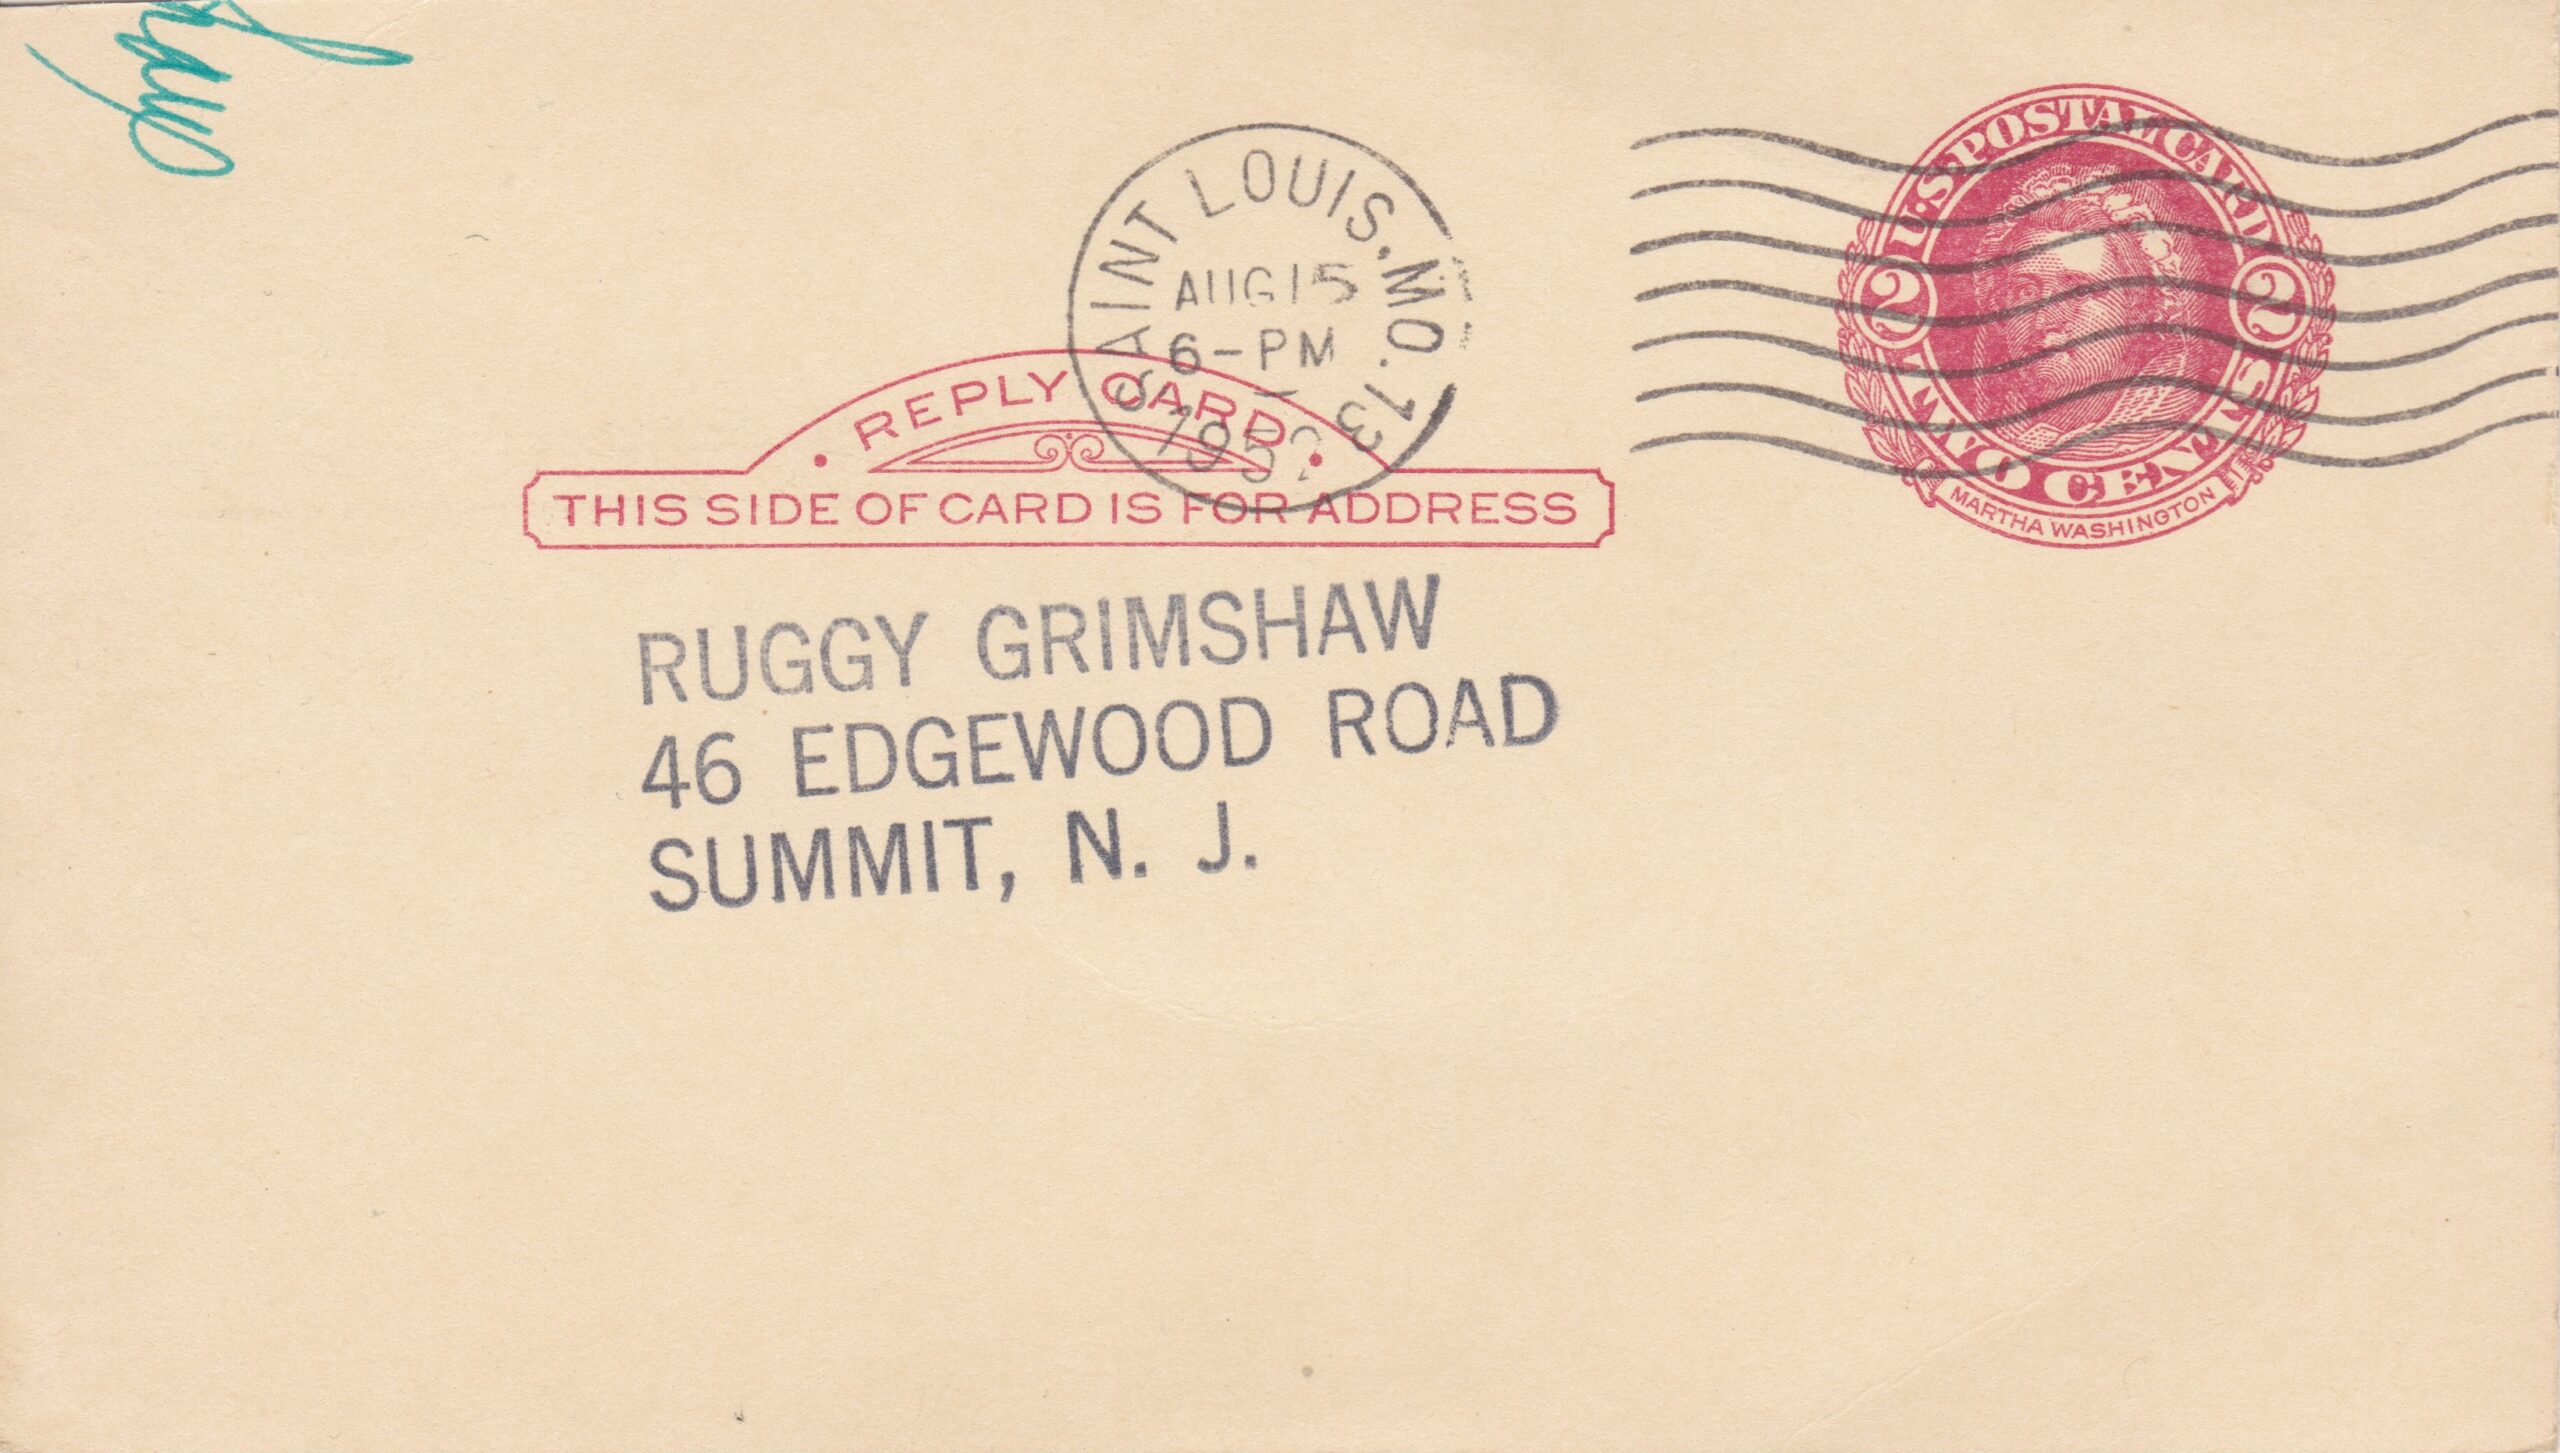 SAINT LOUIS, MO. 13
AUG 15
6-PM
1952
U.S. POSTAL CARD
2 2
TWO CENTS
MARTHA WASHINGTON
REPLY CARD
THIS SIDE OF CARD IS FOR ADDRESS
RUGGY GRIMSHAW
46 EDGEWOOD ROAD
SUMMIT, N. J.